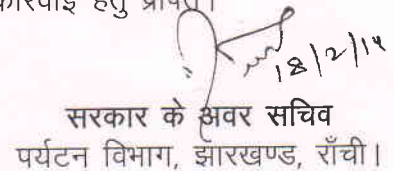 कारवाई हेतु प्रेषित।
18/2/14
सरकार के अवर सचिव
पर्यटन विभाग, झारखण्ड, राँची।